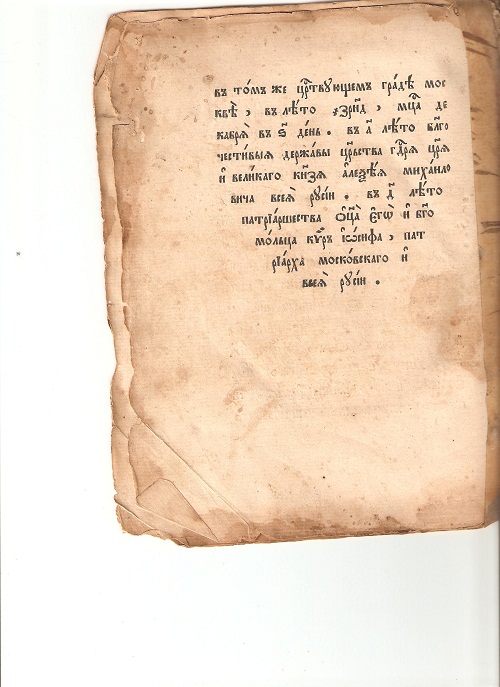 въ то́мъ же црⷭ҇твующемъ гра́дѣ мос
квѣ̀, въ лѣ́то ҂зрн҃д, мцⷭ҇а де
кабрѧ̀ въ ѕ҃ де́нь. въ а҃ лѣ́то бл҃го
чести́выѧ держа́вы црⷭ҇ства гдⷭ҇рѧ цр҃ѧ
и҆ вели́каго кнѧ҃зѧ а҆леѯѣ́ѧ миха́ило
вича всеѧ̀ рꙋсі́и. въ д҃ лѣ́то
патрїа́ршества ѻ҆ц҃а̀ є҆гѡ̀ и҆ бг҃о
мо́льца кѷ́ръ і҆ѡ́сифа, пат
рїа́рха моско́вскаго и҆
всеѧ̀ рꙋсі́и.